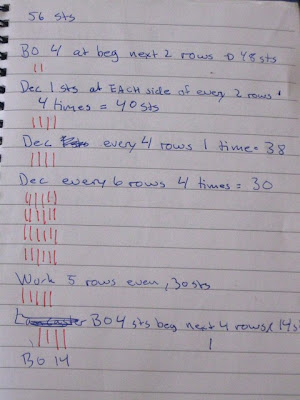 56 sts
BO 4 at beg next 2 rows → 48 sts
Dec 1 sts at EACH side of every 2 rows
4 times = 40 sts
Dec every 4 rows 1 time = 38
Dec every 6 rows 4 times = 30
Work 5 rows even, 30 sts
BO 4 sts beg next 4 rows
BO 14